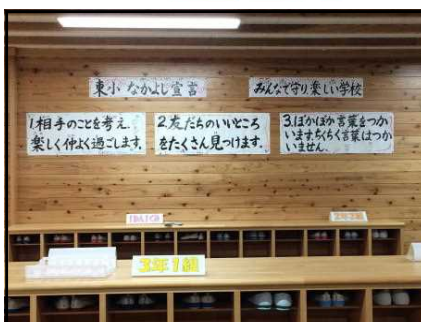 東小 なかよし宣言
みんなで守り楽しい学校
1.相手のことを考え、
楽しく仲よく過ごします。
2.友だちのいいところ
をたくさん見つけます。
3.ぽかぽか言葉をつか
います。ちくちく言葉はつか
いません。
1ねん1くみ
2年2組
3年1組